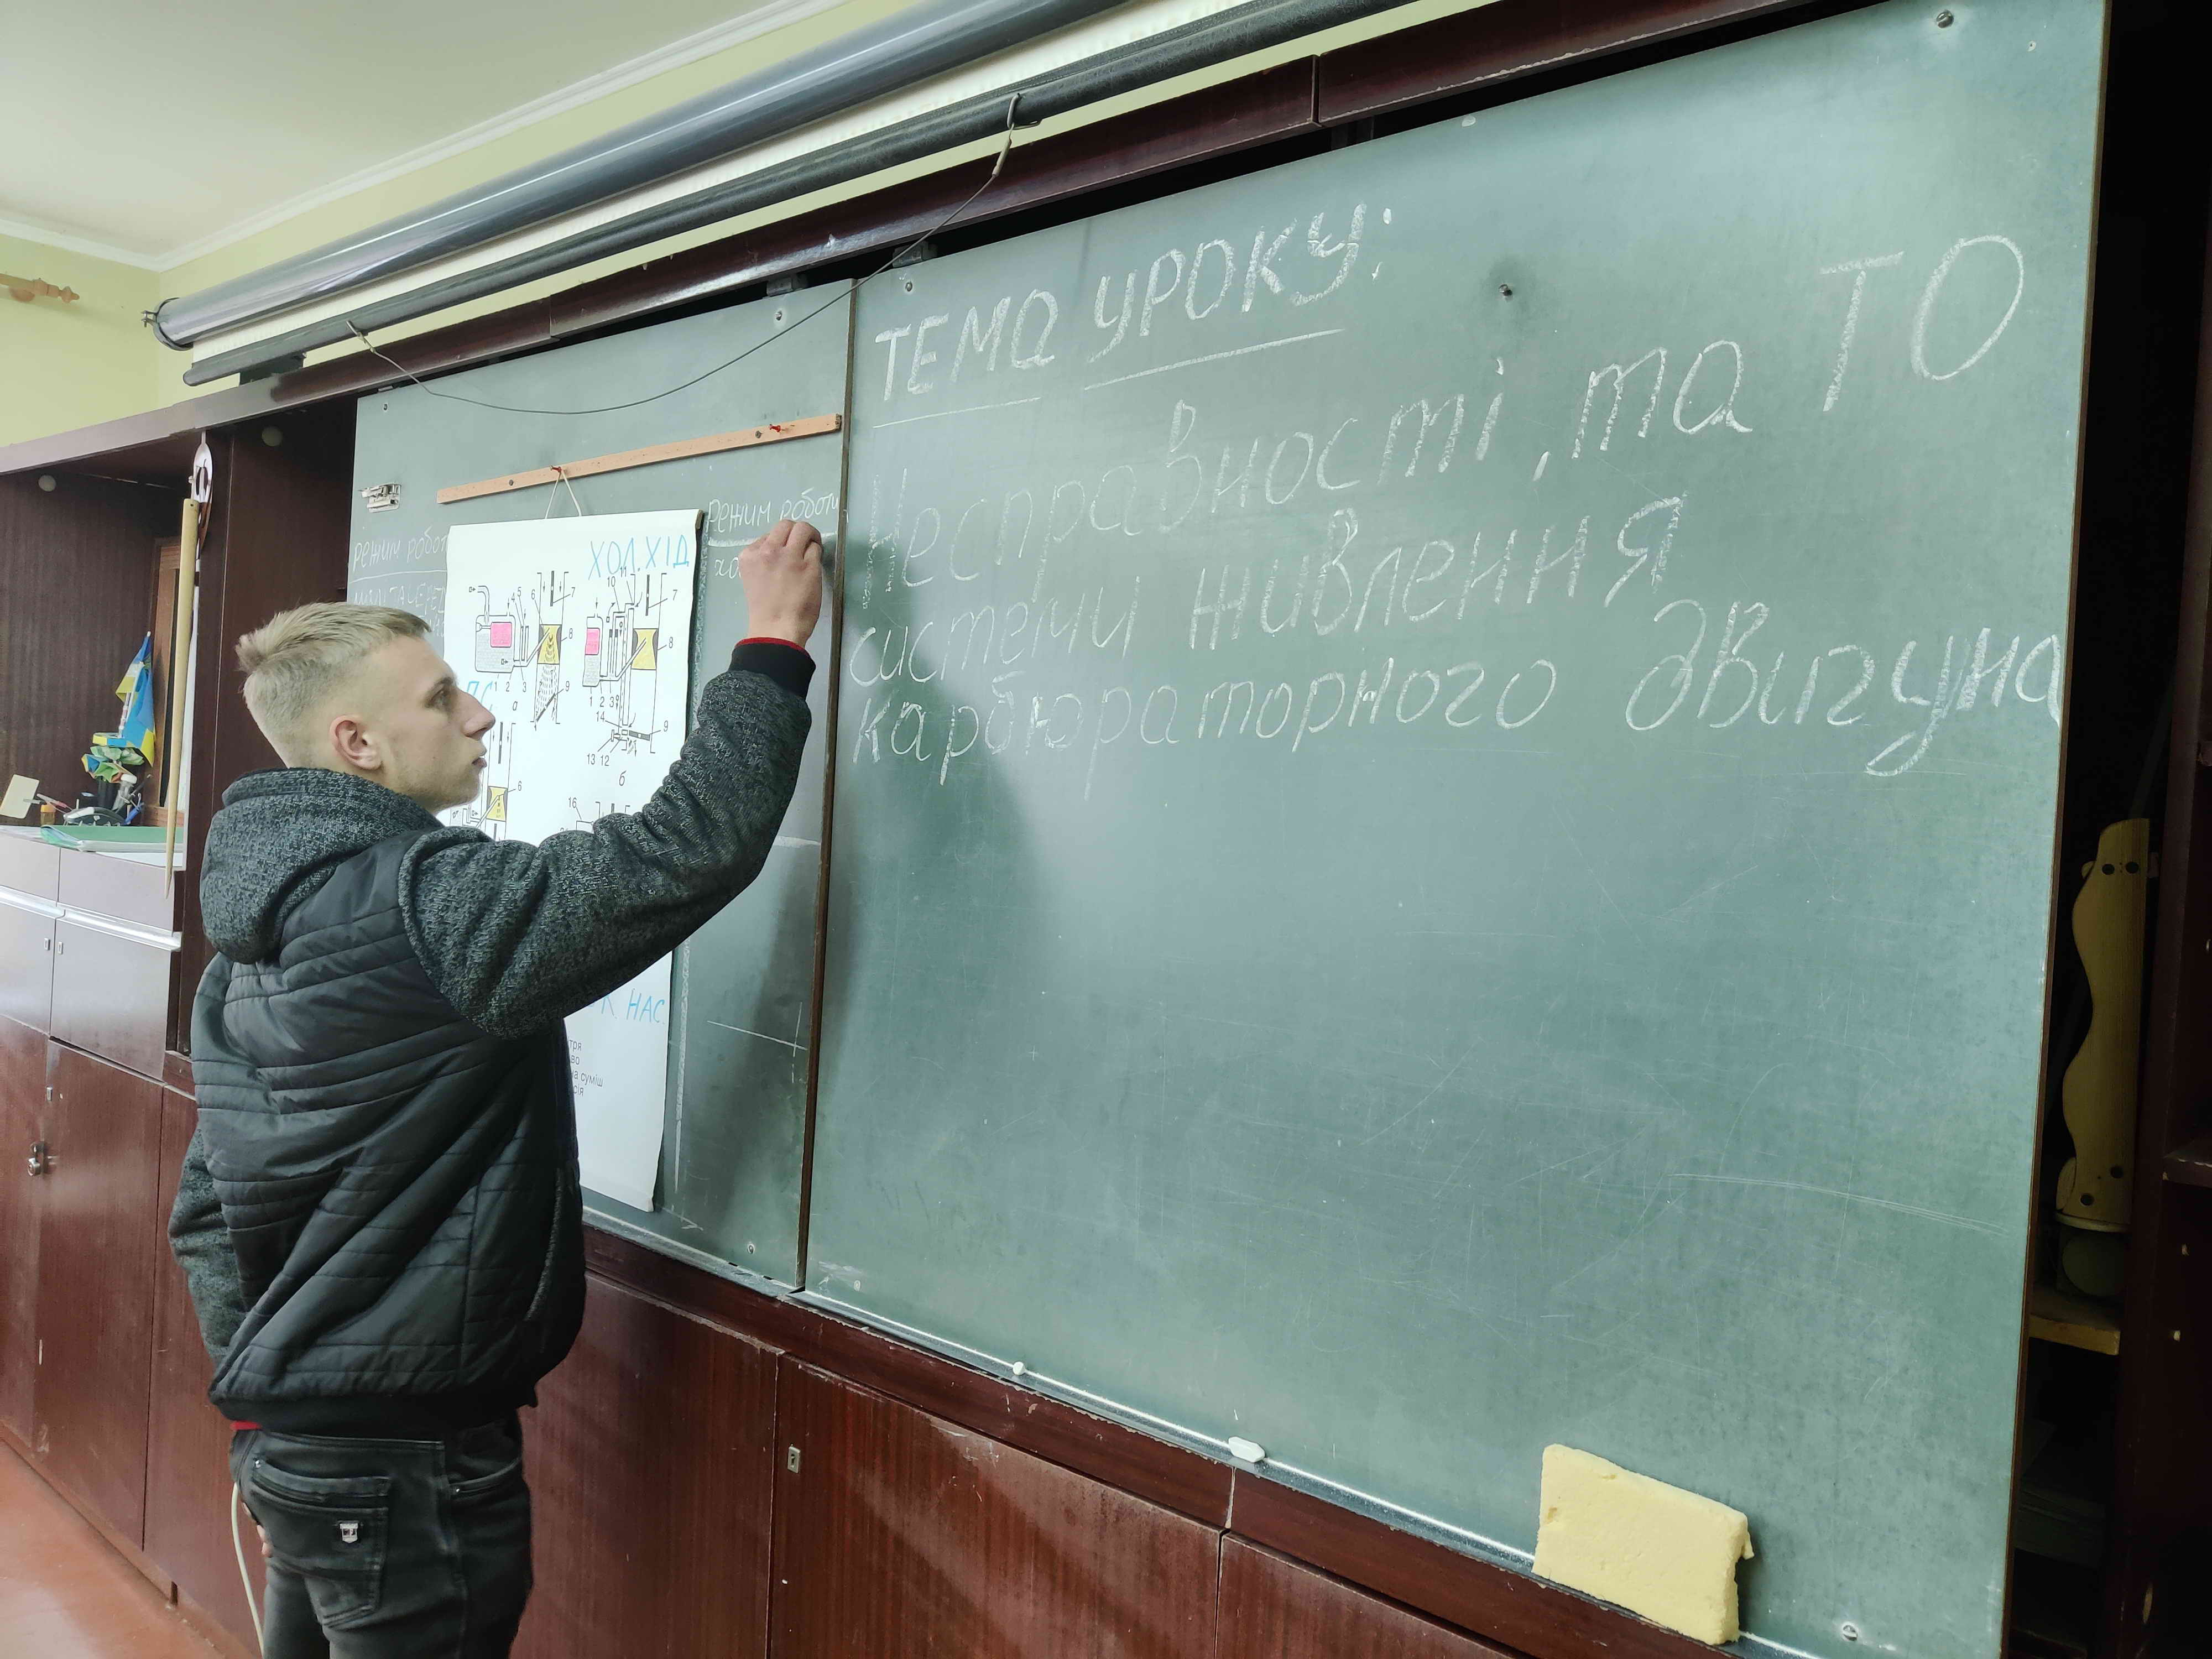 ТЕМА УРОКУ:
Несправності, та ТО
системи живлення
карбюраторного двигуна
режим роботи
режим робот
ХОЛ.ХІД
10 11
4 5 6 7 7
8 8
2 3 9
1 2 3
а
14
9
13 12
б
6
16
К НАС.
суміш